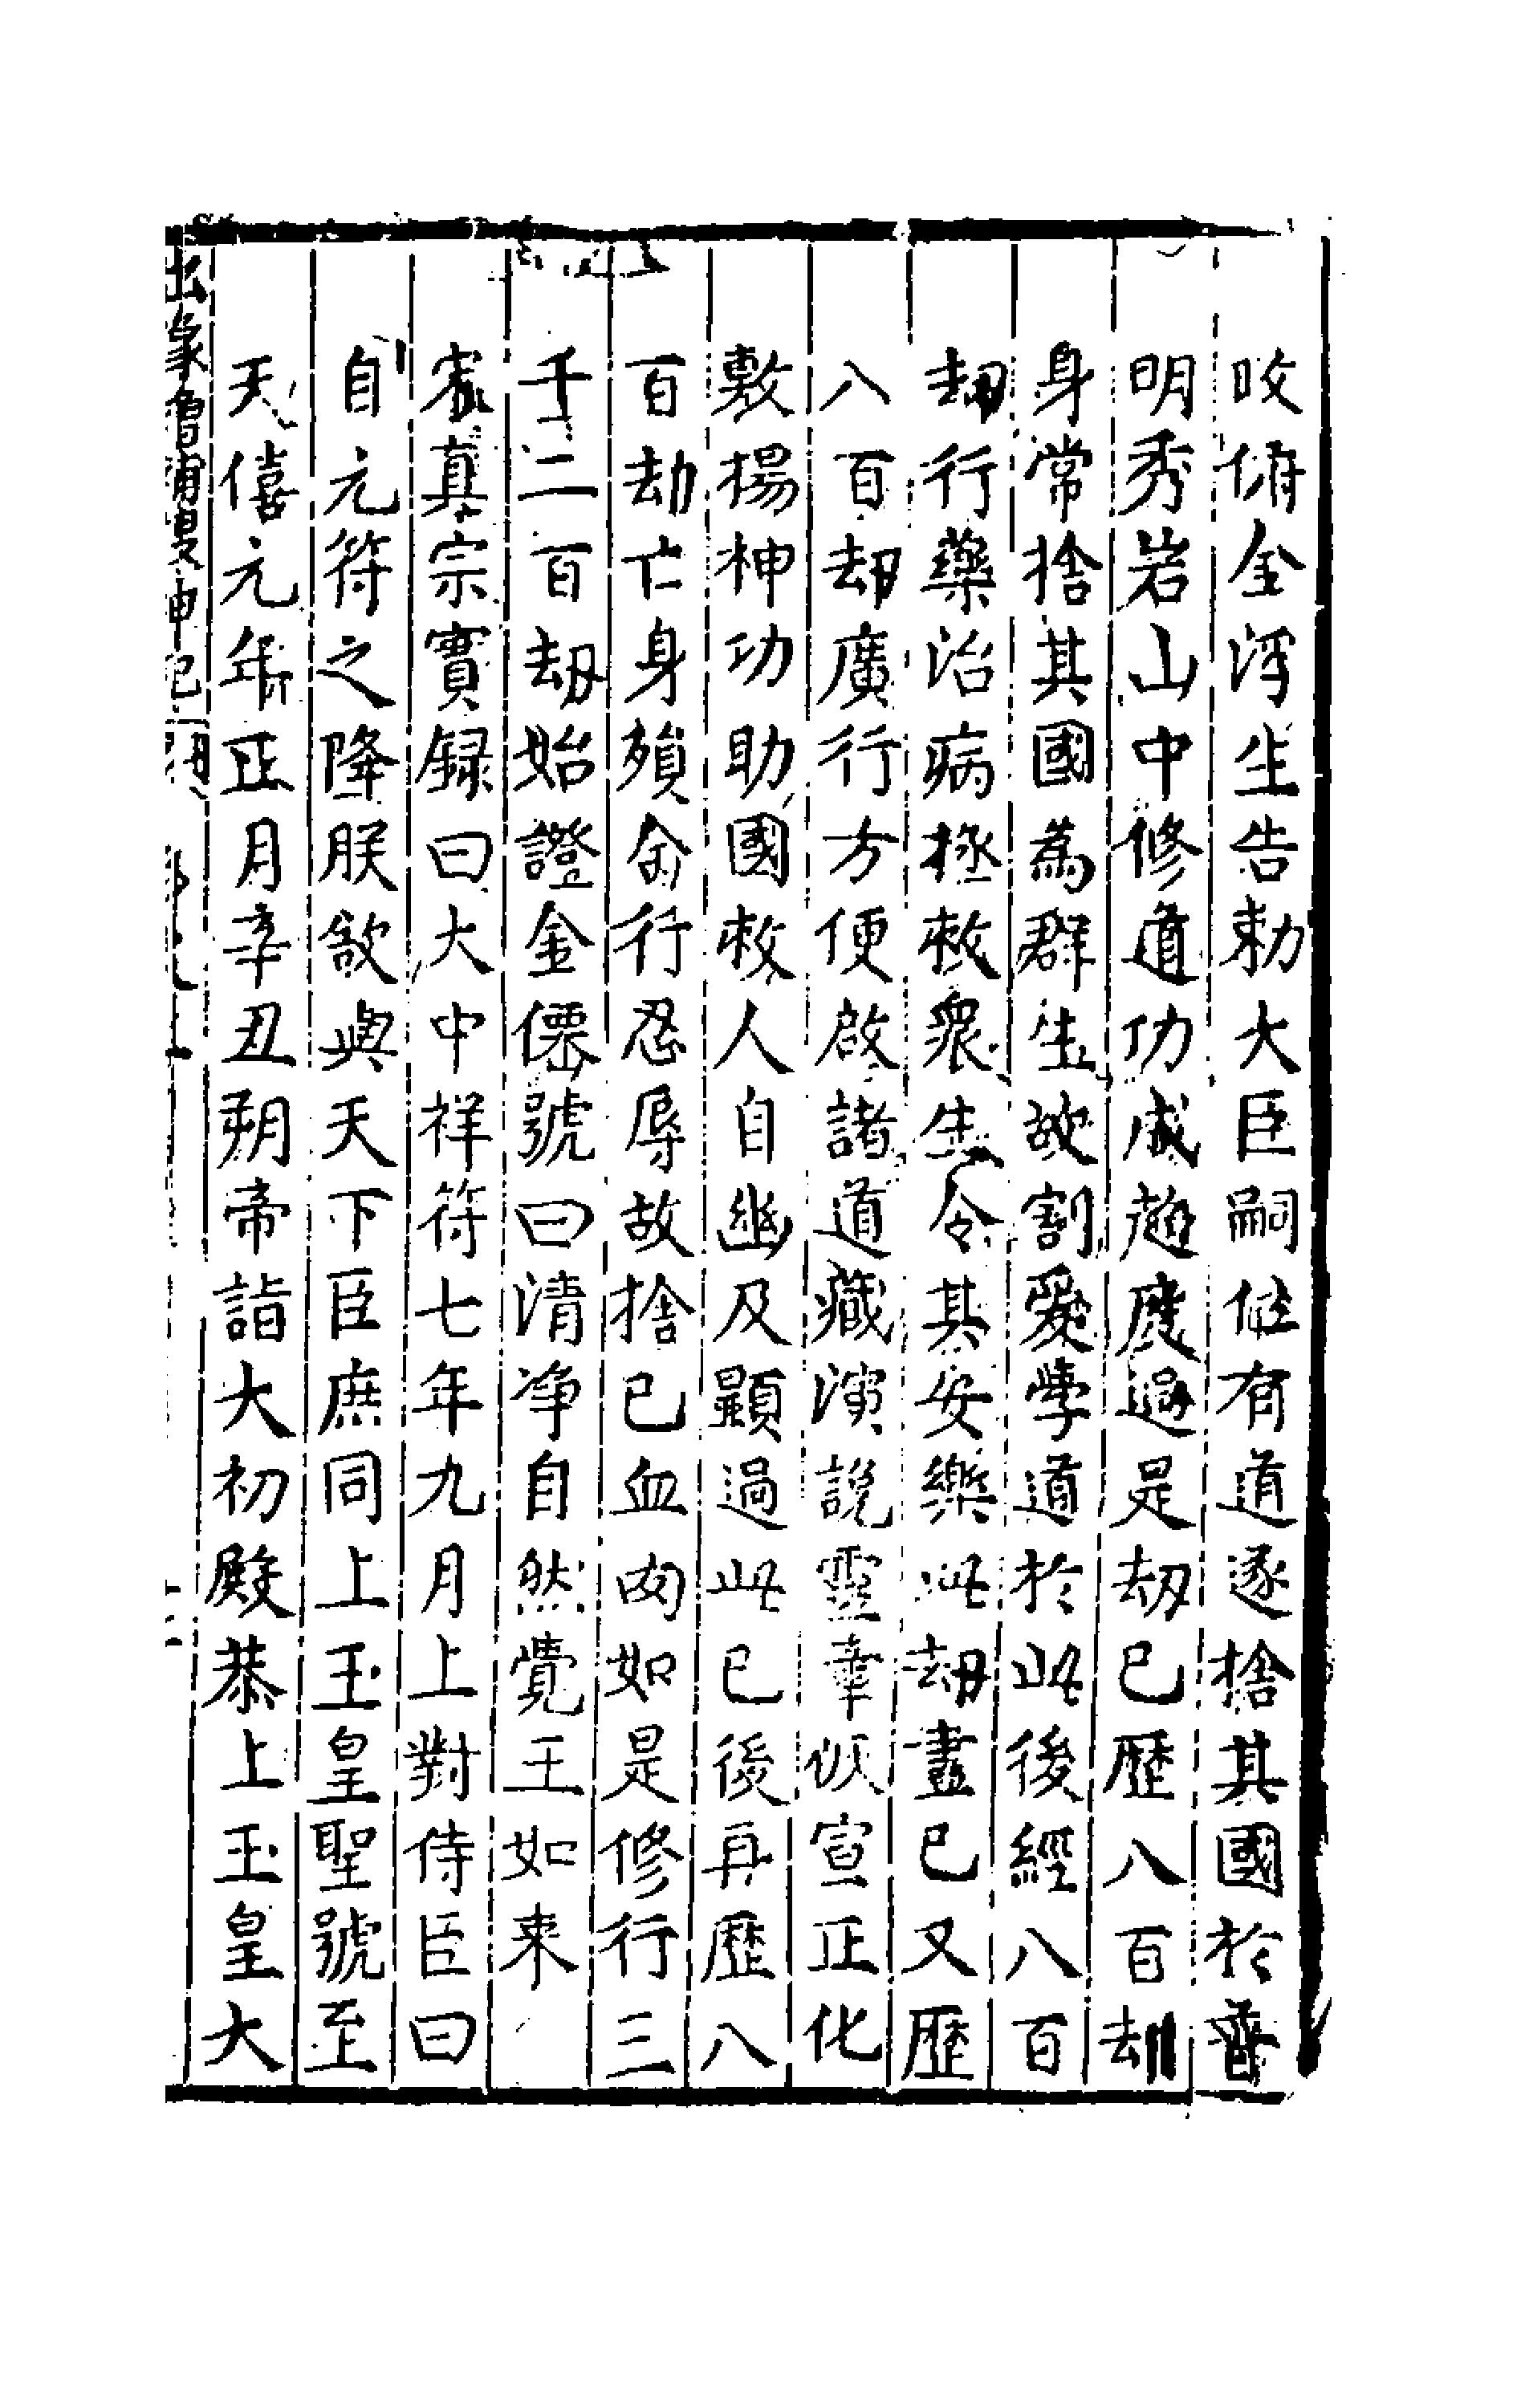 政俯全浮生告勅大臣嗣位有道遂捨其國於普
明秀岩山中修道功成超度過是劫已歷八百劫
身常捨其國為群生故割愛學道於此後經八百
劫行藥治病拯救衆生令其安樂此劫盡已又歷
八百劫廣行方便啟諸道藏演說靈章恢宣正化
敷揚神功助國救人自幽及顯過此已後再歷八
百劫亡身殞命行忍辱故捨已血肉如是修行三
千二百劫始證金僊號曰清净自然覺王如来
宋真宗實録曰大中祥符七年九月上對侍臣曰
自元符之降朕欲與天下臣庶同上玉皇聖號至
天僖元年正月辛丑朔帝詣大初殿恭上玉皇大
出像增補搜神記